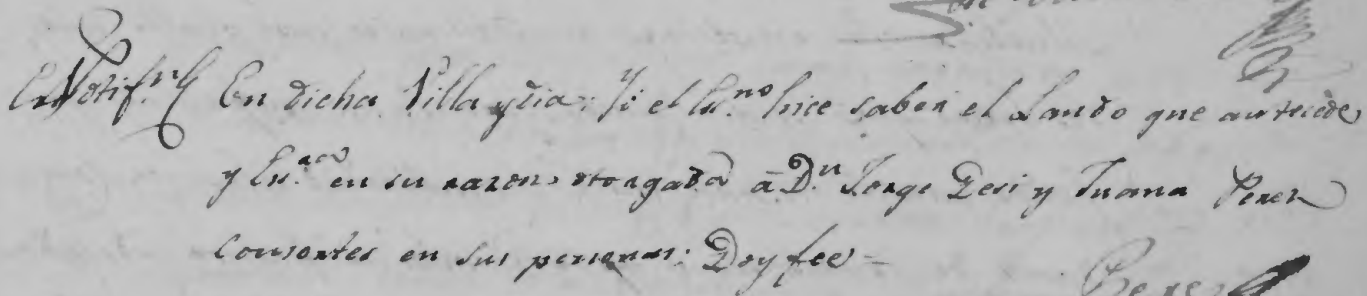 Notif.n En dicha Villa y dia: Yo el Es.no hice saber el Laudo que antecede
y Es.ra en su razon otorgada à D.n Jorge Desi y Juana Perez
Consortes en sus personas: Doy fee =
Perez